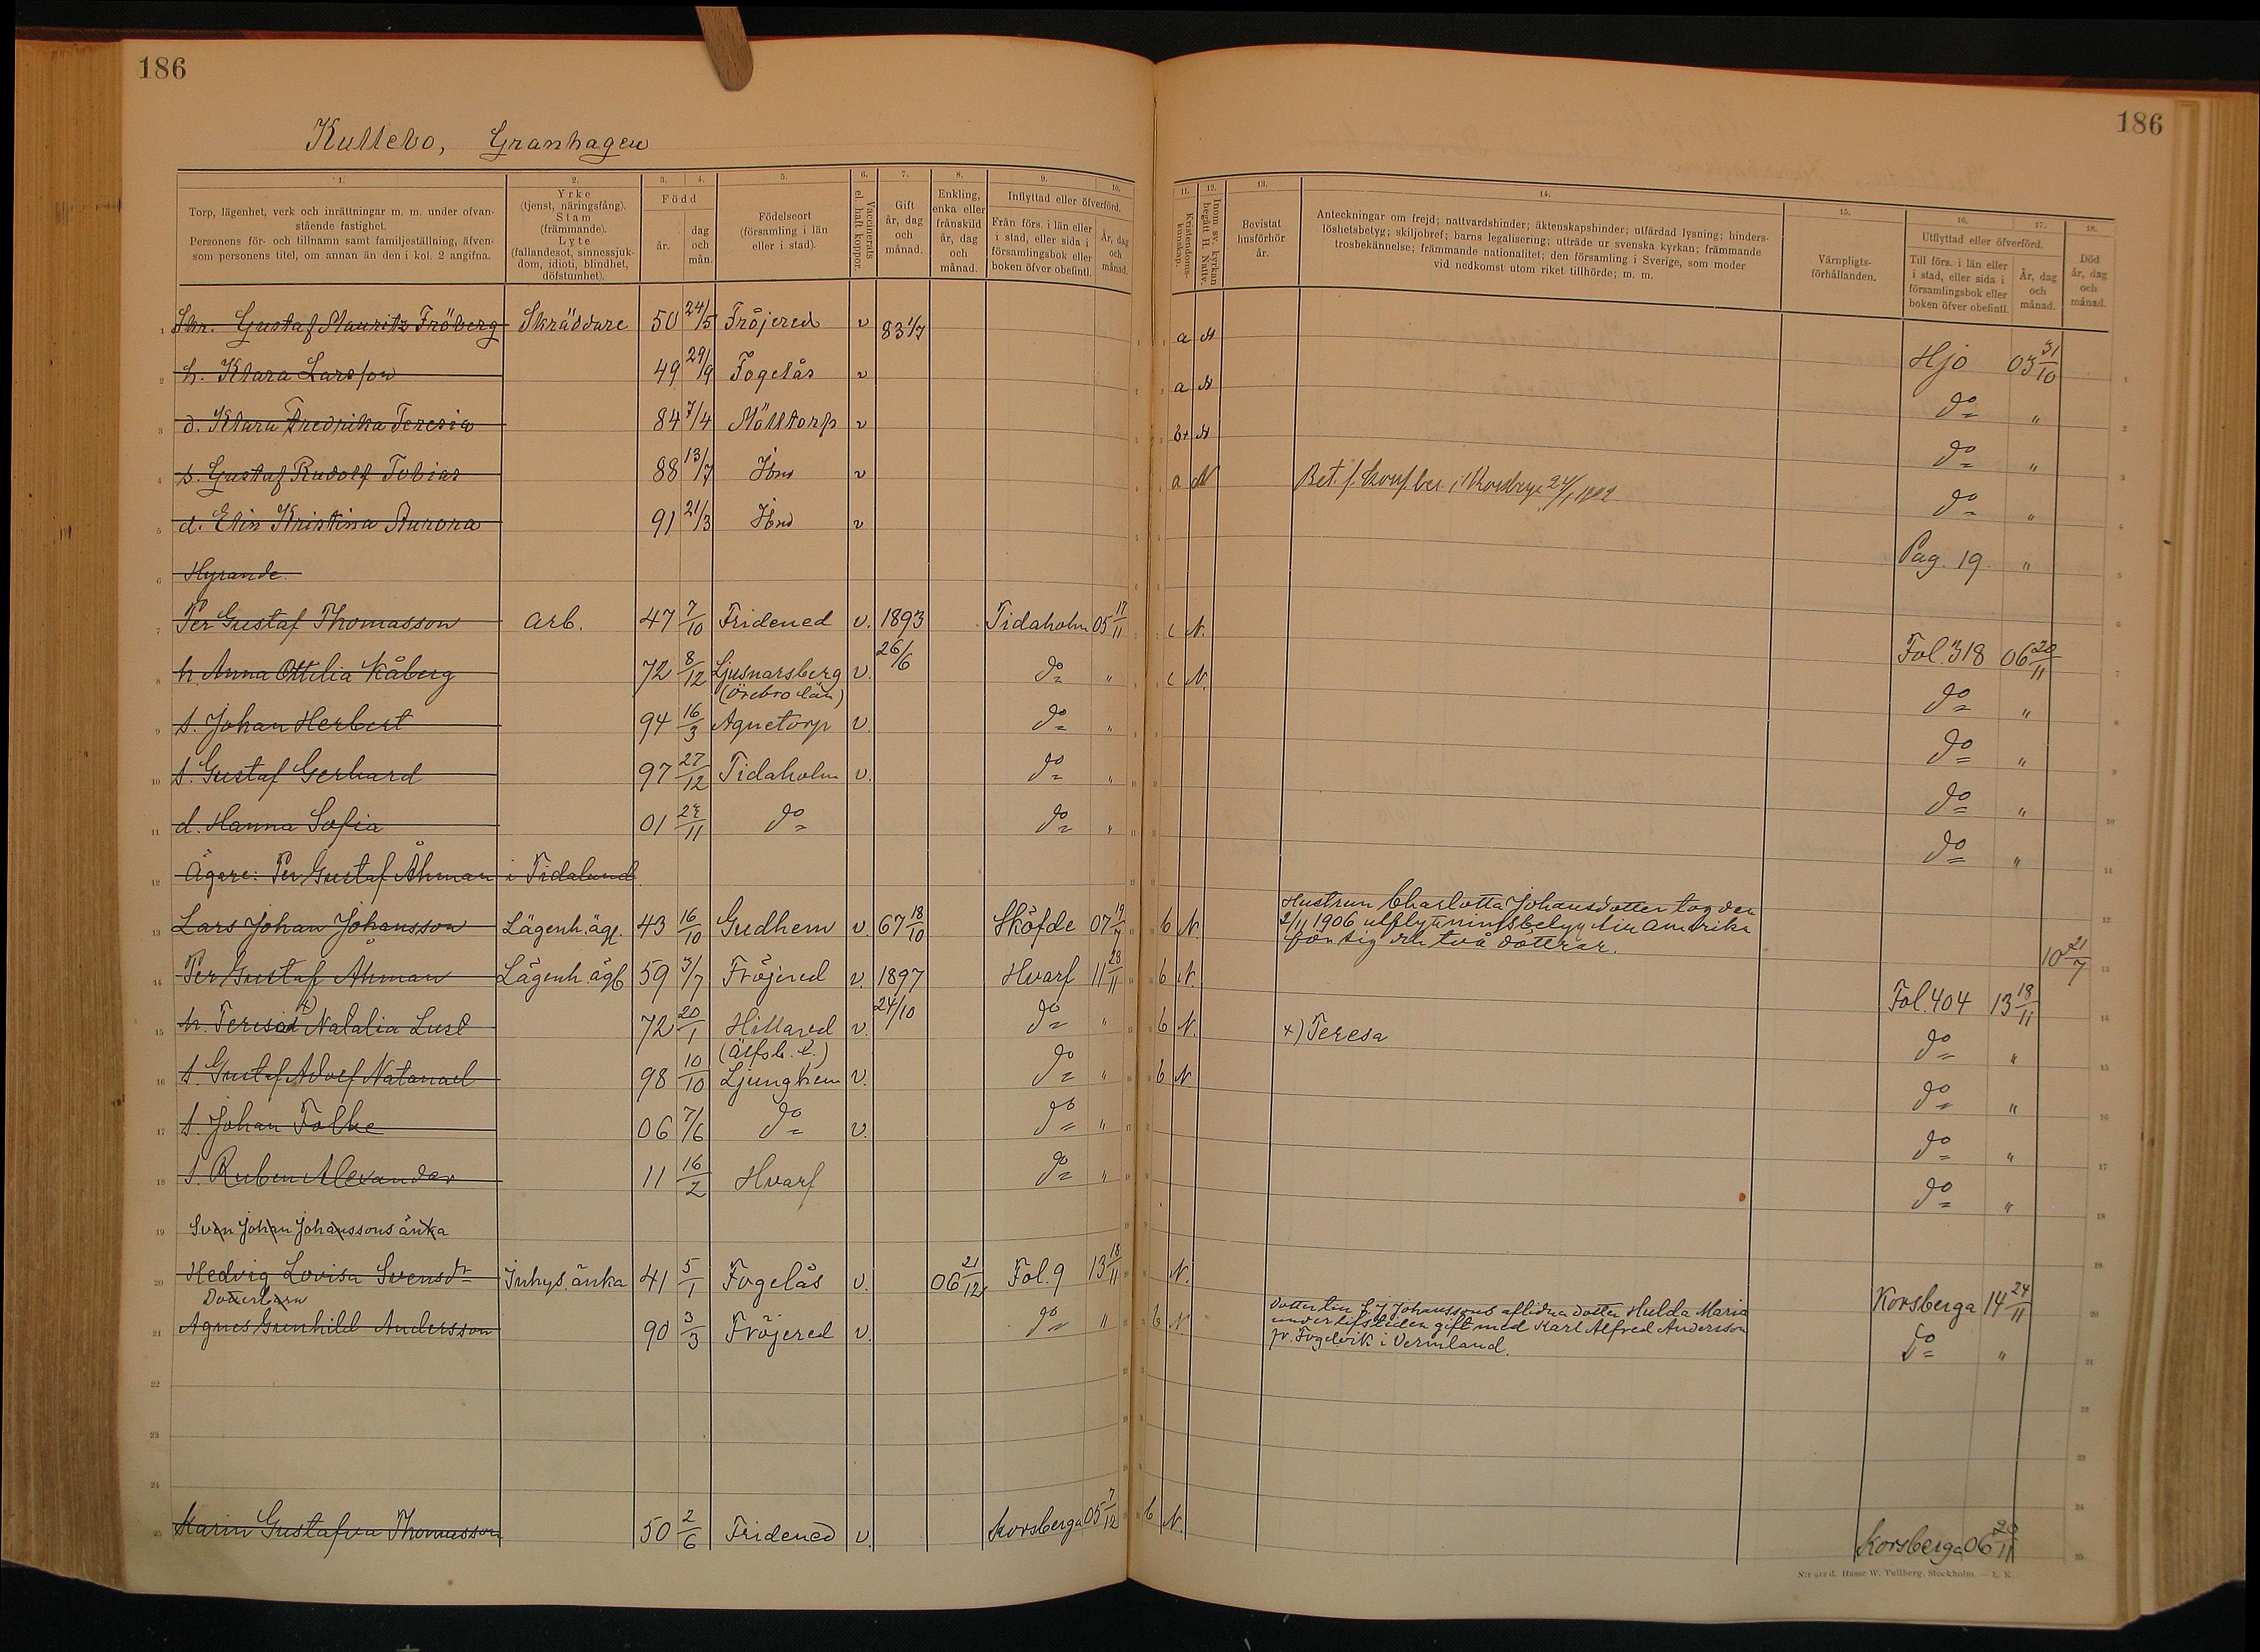 186
186
Kullebo, Granhagen
1.
Torp, lägenhet, verk och inrättningar m. m. under ofvan-
stående fastighet.
Personens för- och tillnamn samt familjeställning, äfven-
som personens titel, om annan än den i kol. 2 angifna.
2.
Yrke
(tjenst, näringsfång).
Stam
(främmande).
Lyte
(fallandesot, sinnessjuk-
dom, idioti, blindhet,
döfstumhet).
3. 4.
Född
år.
dag
och
mån.
5.
Födelseort
(församling i län
eller i stad).
6.
Vaccinerats
el. haft koppor.
7.
Gift
år, dag
och
månad.
8.
Enkling,
enka eller
frånskild
år, dag
och
månad.
9. 10.
Inflyttad eller öfverförd.
Från förs. i län eller
i stad, eller sida i
församlingsbok eller
boken öfver obefintl.
År, dag
och
månad.
11.
Kristendoms-
kunskap.
12.
Inom sv. kyrkan
begått H. Nattv.
13.
Bevistat
husförhör
år.
14.
Anteckningar om frejd; nattvardshinder; äktenskapshinder; utfärdad lysning; hinders-
löshetsbetyg; skiljobref; barns legalisering; utträde ur svenska kyrkan; främmande
trosbekännelse; främmande nationalitet; den församling i Sverige, som moder
vid nedkomst utom riket tillhörde; m. m.
15.
Värnpligts-
förhållanden.
16. 17.
Utflyttad eller öfverförd.
Till förs. i län eller
i stad, eller sida i
församlingsbok eller
boken öfver obefintl.
År, dag
och
månad.
18.
Död
år, dag
och
månad.
1 Skr. Gustaf Mauritz Fröberg Skräddare 50 24/5 Fröjered v 83 1/7 a N Hjo 03 31/10
2 h. Klara Larsson 49 29/9 Fogelås v a N do "
3 d. Klara Fredrika Teresia 84 7/4 Mölltorp v b+ N do "
4 s. Gustaf Rudolf Tobias 88 13/7 Ibm v a N Bet. f. konf. ber. i Korsberga 24/1 1902 do "
5 d. Elin Kristina Aurora 91 21/3 Ibm v Pag. 19 "
6 Hyrande.
7 Per Gustaf Thomasson Arb. 47 7/10 Fridened v. 1893 26/6 Tidaholm 05 17/11 c N. Fol. 318 06 20/11
8 h. Anna Ottilia Kåberg 72 8/12 Ljusnarsberg (Örebro län) v. do " c N. do "
9 s. Johan Herbert 94 16/3 Agnetorp v. do " do "
10 s. Gustaf Gerhard 97 27/12 Tidaholm v. do " do "
11 d. Hanna Sofia 01 /11 do do " do "
12 Ägare: Per Gustaf Åhman i Tidalund
Hustrun Charlotta Johansdotter tog den
2/11 1906 utflyttningsbetyg till Amerika
för sig och två döttrar.
13 Lars Johan Johansson Lägenh. äg. 43 16/10 Gudhem v. 67 18/10 Sköfde 07 19/7 b N. 10 21/7
14 Per Gustaf Åhman Lägenh. äg. 59 3/7 Fröjered v. 1897 24/10 Hvarf 11 28/11 b N. Fol. 404 13 18/11
15 h. Teresia x) Natalia Lust 72 20/1 Hillared (Älfsb. l.) v. do " b N. x) Teresa do "
16 s. Gustaf Adolf Natanael 98 10/10 Ljunghem v. do " b N. do "
17 s. Johan Folke 06 7/6 do v. do " do "
18 s. Ruben Alexander 11 16/2 Hvarf do " do "
19 Sven Johan Johanssons änka
20 Hedvig Lovisa Svensdr Inhys. änka 41 5/1 Fogelås v. 06 21/12 Fol. 9 13 18/11 N. Korsberga 14 24/11
Dotterbarn
21 Agnes Gunhild Andersson 90 3/3 Fröjered v. do " b N. do "
Dotter till S. J. Johanssons aflidna dotter Hulda Maria
under lifstiden gift med Karl Alfred Andersson
fr. Fogelvik i Vermland.
22
23
24
25 Karin Gustafva Thomasson 50 2/6 Fridened v. Korsberga 05 7/12 b N. Korsberga 06 20/11
Hasse W. Tullberg, Stockholm. — L. K.